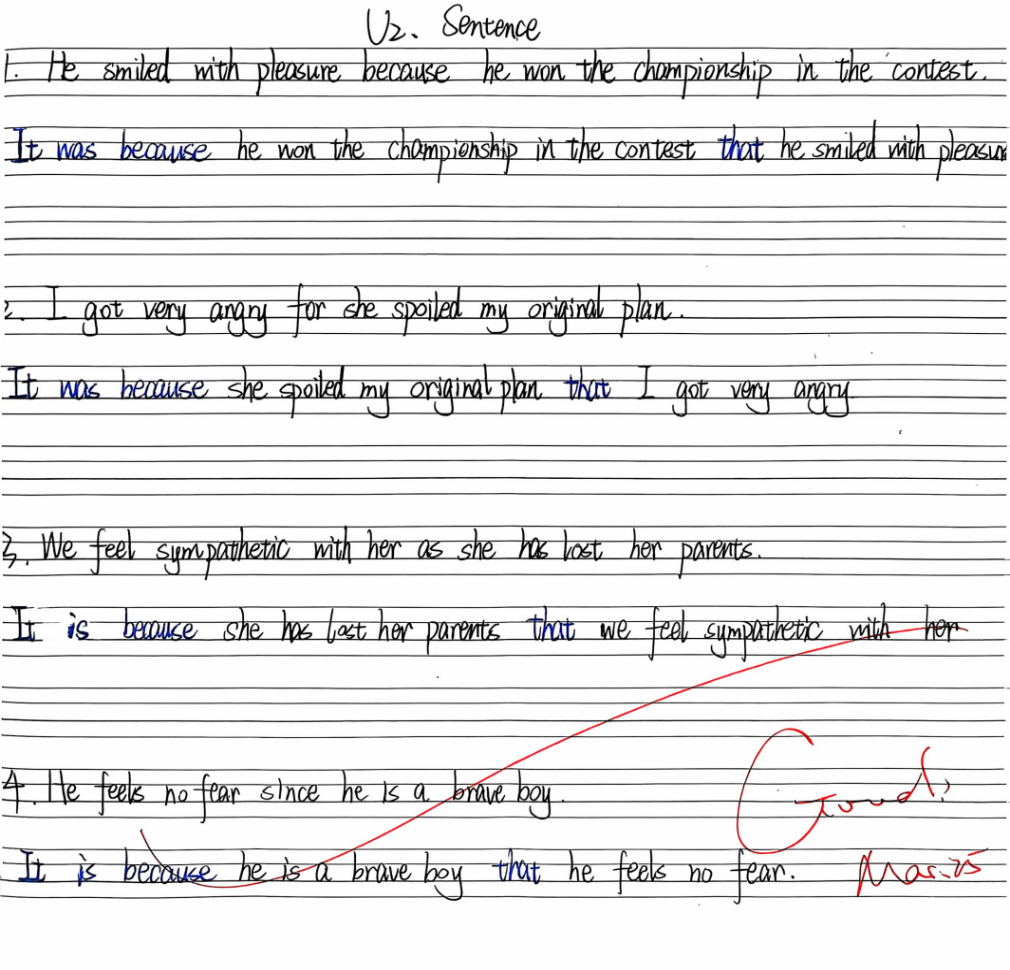 U2. Sentence
1. He smiled with pleasure because he won the championship in the contest.
It was because he won the championship in the contest that he smiled with pleasure
2. I got very angry for she spoiled my original plan.
It was because she spoiled my original plan that I got very angry
3. We feel sympathetic with her as she has lost her parents.
It is because she has lost her parents that we feel sympathetic with her
4. He feels no fear since he is a brave boy.
Good!
It is because he is a brave boy that he feels no fear.
Mar.25